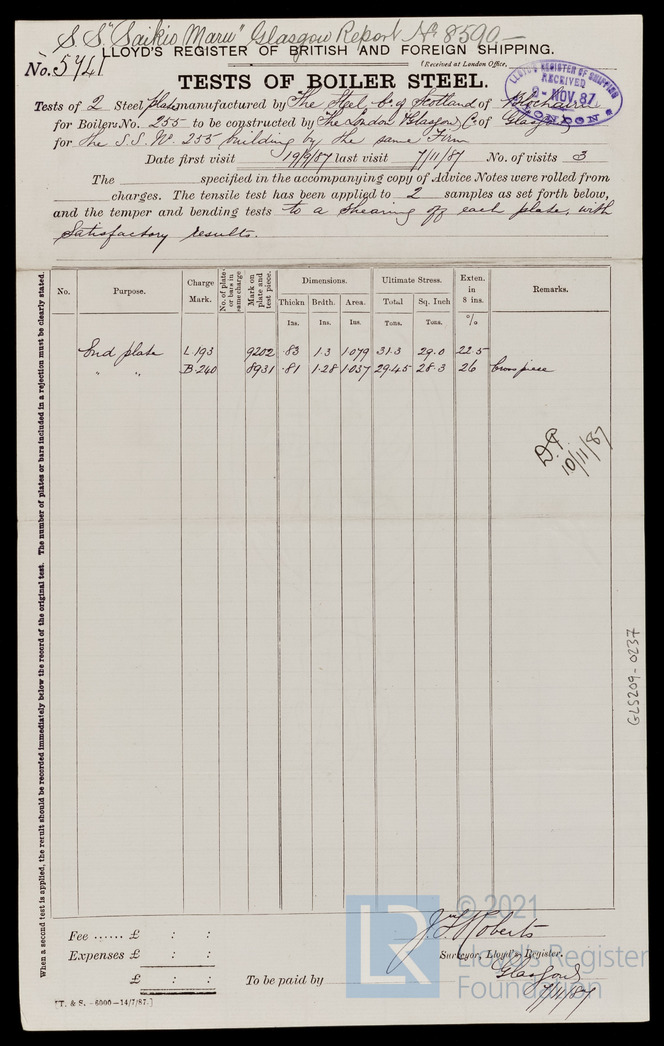 S.S "Saikio Maru" Glasgow Report No 8590 —
LLOYD'S REGISTER OF BRITISH AND FOREIGN SHIPPING.
No. 5741
(Received at London Office,
LLOYD'S REGISTER OF SHIPPING RECEIVED 9 - NOV. 87 LONDON
TESTS OF BOILER STEEL.
Tests of 2 Steel plates manufactured by The Steel Co of Scotland of Blochairn
for Boilers No. 255 to be constructed by The London & Glasgow Co of Glasgow
for the S.S. No. 255 building by the same Firm
Date first visit 19/9/87 last visit 7/11/87 No. of visits 3
The specified in the accompanying copy of Advice Notes were rolled from
charges. The tensile test has been applied to 2 samples as set forth below,
and the temper and bending tests to a shearing off each plate, with
Satisfactory results.
No. Purpose. Charge Mark. No. of plates or bars in same charge Mark on plate and test piece. Dimensions. Ultimate Stress. Exten. in 8 ins. Remarks.
Thickn Brdth. Area. Total Sq. Inch
Ins. Ins. Ins. Tons. Tons. %
End plate L.193 9202 .83 1.3 1.079 31.3 29.0 22.5
" " B.240 8931 .81 1.28 1.037 29.45 28.3 26 Crosspiece
10/11/87
When a second test is applied, the result should be recorded immediately below the record of the original test. The number of plates or bars included in a rejection must be clearly stated.
GLS209-0237
Fee ...... £ : :
Expenses £ : :
£ : :
To be paid by
Roberts
Surveyor, Lloyd's Register.
Glasgow
7/11/87
[T. & S. - 6000 - 14/7/87.]
© 2021
LR
Lloyd's Register
Foundation